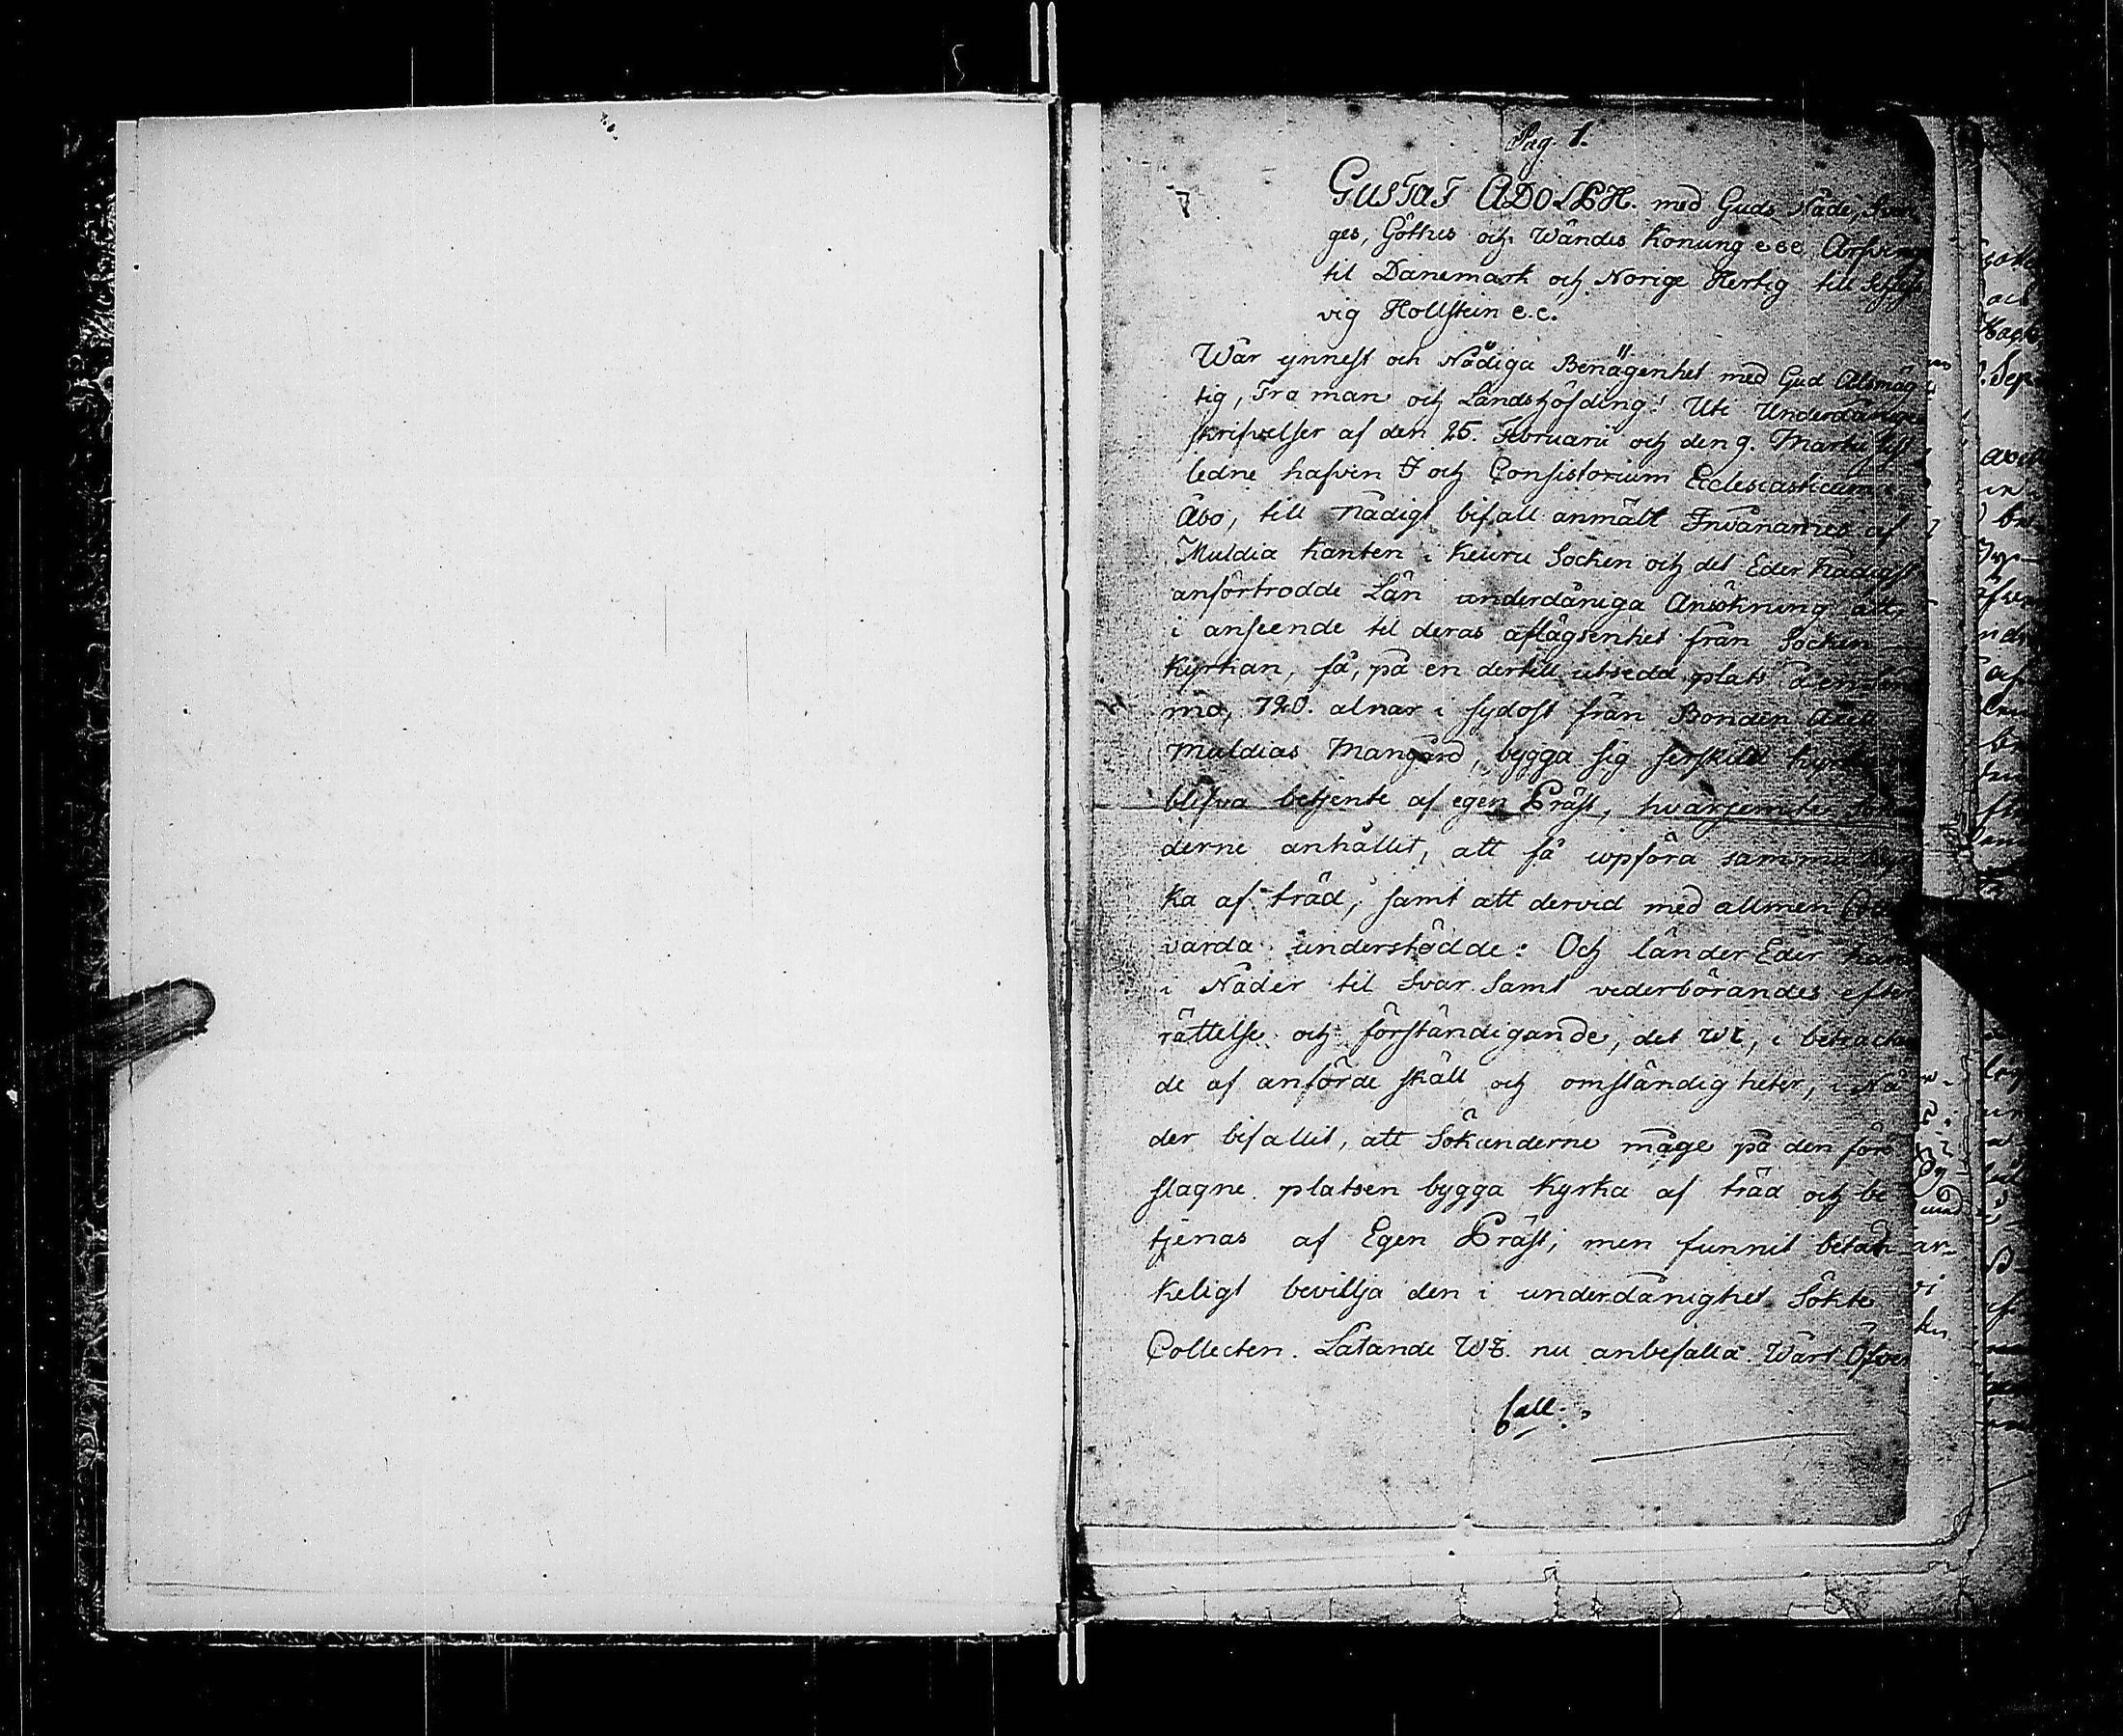 Pag. 1.
GUSTAF ADOLPH. med Guds Nåde, Sveri
ges, Göthes och Wändes Konung e.e.e. Arfvinge
til Danemark och Norige Hertig till Schles
vig Hollstein e.c.
Wår ynnest och Nådiga Benägenhet med Gud Alsmäg
tig, Tro man och Landshöfding! Uti Underdånige
skrifvelser af den 25. Februarii och den 9. Martii sist
ledne hafven I och Consistorium Ecclesiasticum i
Åbo, till nådigt bifall anmält Invånarnes af
Muldia kanten i Keuru Socken och det Eder Nådigst
anförtrodde Län underdåniga Ansökning att,
i anseende til deras aflägsenhet från Socken
Kyrkan, få, på en dertill utsedd plats
mo, 720. alnar i sydost från Bonden
Muldias Mangård, bygga sig serskild kyrka
blifva betjente af egen Präst, hvarjemte
derne anhållit, att få uppföra samma kyr
ka af träd, samt att dervid med allmen
varda understödde: Och länder Eder här
i Nåder til Svar samt vederbörandes efter
rättelse och förständigande, det Wi, i betractan
de af anförde skäll och omständigheter, i Nå
der bifallit, att Sökanderne måge på den före
slagne platsen bygga Kyrka af träd och be
tjenas af Egen Präst; men funnit betän
keligt bevillja den i underdånighet Sökte
Collecten. Låtande Wi nu anbefalla Wårt Öfver
fall.